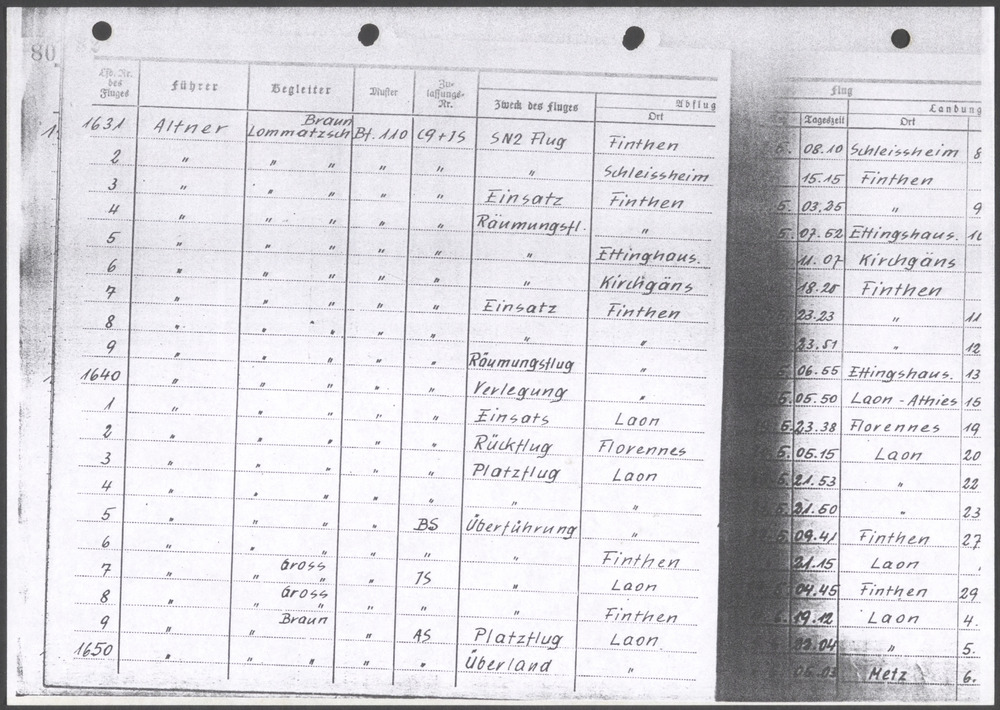 80
Lfd. Nr. des Fluges Führer Begleiter Muster Zulassungs-Nr. Zweck des Fluges Abflug Ort Flug Tageszeit Landung Ort
1631 Altner Braun Lommatzsch Bf. 110 C9+JS SN2 Flug Finthen 5. 08.10 Schleissheim 8
2 " " " " " " Schleissheim 15.15 Finthen
3 " " " " " Einsatz Finthen 5. 03.25 " 9
4 " " " " " Räumungsfl. " 5. 07.52 Ettingshaus. 10
5 " " " " " " Ettinghaus. 11.07 Kirchgäns
6 " " " " " " Kirchgäns 18.20 Finthen
7 " " " " " Einsatz Finthen 23.23 " 11
8 " " " " " " " 23.51 " 12
9 " " " " " Räumungsflug " 06.55 Ettingshaus. 13
1640 " " " " " Verlegung " 5. 05.50 Laon-Athies 15
1 " " " " " Einsats Laon 5. 23.38 Florennes 19
2 " " " " " Rückflug Florennes 5. 05.15 Laon 20
3 " " " " " Platzflug Laon 5. 21.53 " 22
4 " " " " " " " 5. 21.50 " 23
5 " " " " BS Überführung " 5. 09.41 Finthen 27
6 " " " " " " Finthen 21.15 Laon
7 " Gross " " JS " Laon 04.45 Finthen 29
8 " Gross " " " " Finthen 19.12 Laon 4.
9 " Braun " " AS Platzflug Laon 22.04 " 5.
1650 " " " " " Überland " 05.03 Metz 6.